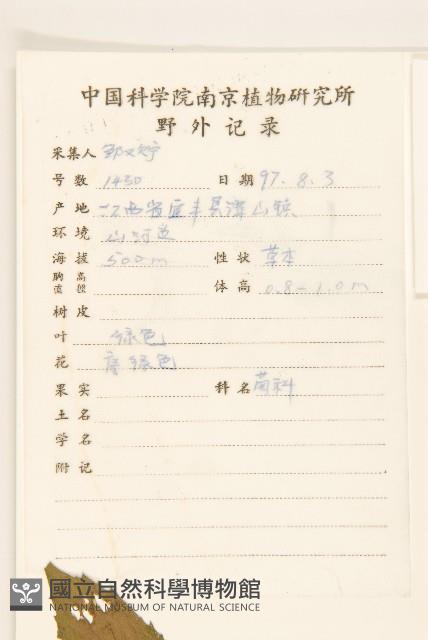 中国科学院南京植物研究所
野外记录
采集人 邹
号数 1430 日期 97.8.3
产地 江西省宜丰县潭山镇
环境 山
海拔 500m 性状 草本
胸高直径 体高 0.8-1.0m
树皮
叶 绿色
花 绿色
果实 科名 菊科
土名
学名
附记
國立自然科學博物館
NATIONAL MUSEUM OF NATURAL SCIENCE